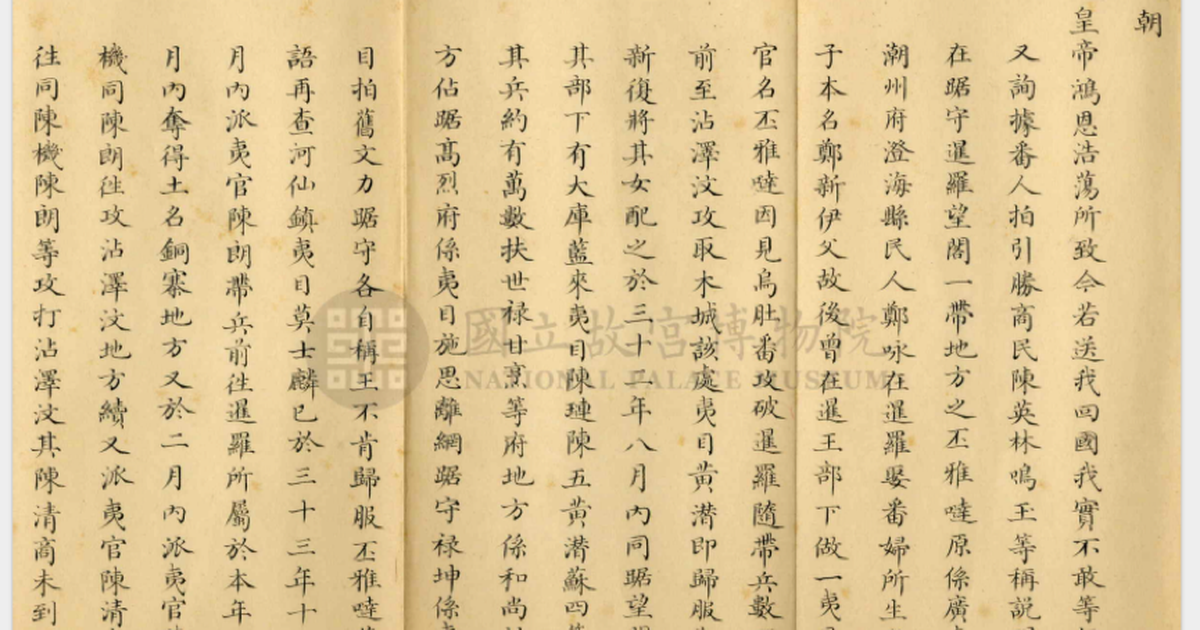 朝
皇帝鴻恩浩蕩所致今若送我回國我實不敢等
又詢據番人拍引勝商民陳英林鳴玉等稱說
在踞守暹羅望閣一帶地方之丕雅噠原係廣
潮州府澄海縣民人鄭咏在暹羅娶番婦所生
子本名鄭新伊父故後曾在暹王部下做一夷
官名丕雅噠因見烏肚番攻破暹羅隨帶兵數
前至沾澤汶攻取木城該處夷目黃潛即歸服
新復將其女配之於三十二年八月內同踞望
其部下有大庫藍來夷目陳璉陳五黃潛蘇四
其兵約有萬數扶世祿甘烹等府地方係和尚
方佔踞高烈府係夷目施思離網踞守祿坤係
目拍舊文力踞守各自稱王不肯歸服丕雅噠
語再查河仙鎮夷目莫士麟已於三十三年十
月內派夷官陳朗帶兵前往暹羅所屬於本年
月內奪得土名銅寨地方又於二月內派夷官
機同陳朗往攻沾澤汶地方續又派夷官陳清
往同陳機陳朗等攻打沾澤汶其陳清商未到
國立故宮博物院
NATIONAL PALACE MUSEUM